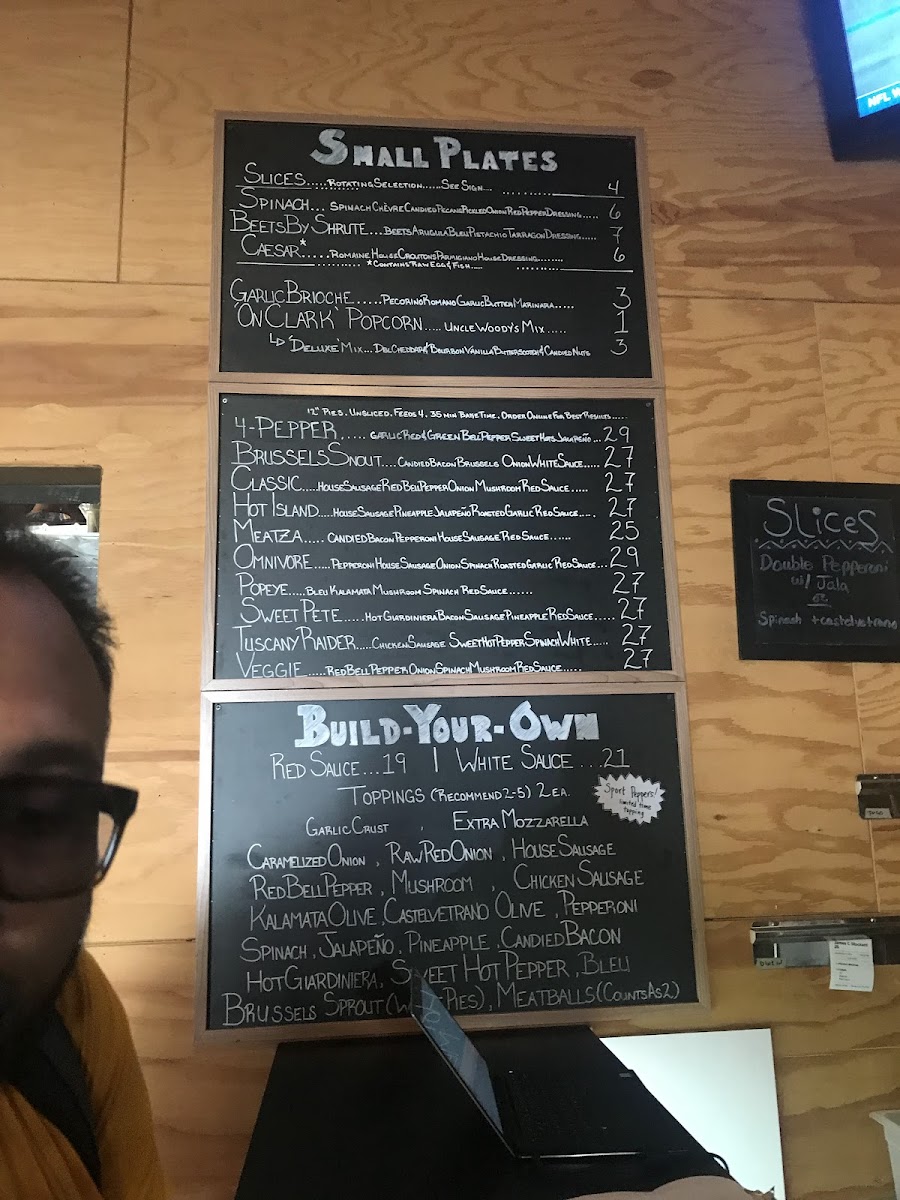 SMALL PLATES
SLICES.....ROTATING SELECTION......SEE SIGN.... ............ 4
SPINACH... SPINACH CHÈVRE CANDIED PECANS PICKLED ONION RED PEPPER DRESSING..... 6
BEETS BY SHRUTE...BEETS ARUGULA BLEU PISTACHIO TARRAGON DRESSING...... 7
CAESAR*..... ROMAINE HOUSE CROUTONS PARMIGIANO HOUSE DRESSING........ 6
*CONTAINS RAW EGG & FISH.....
GARLIC BRIOCHE......PECORINO ROMANO GARLIC BUTTER MARINARA..... 3
'ON CLARK' POPCORN..... UNCLE WOODY'S MIX ..... 1
↳ 'DELUXE' MIX... DBL CHEDDAR & BOURBON VANILLA BUTTERSCOTCH & CANDIED NUTS 3
12" PIES. UNSLICED. FEEDS 4. 35 MIN BAKE TIME. ORDER ONLINE FOR BEST RESULTS.....
4-PEPPER..... GARLIC RED & GREEN BELL PEPPER SWEET HOTS JALAPEÑO...29
BRUSSELS SNOUT....CANDIED BACON BRUSSELS ONION WHITE SAUCE.....27
CLASSIC....HOUSE SAUSAGE RED BELL PEPPER ONION MUSHROOM RED SAUCE..... 27
HOT ISLAND....HOUSE SAUSAGE PINEAPPLE JALAPEÑO ROASTED GARLIC RED SAUCE.... 27
MEATZA..... CANDIED BACON PEPPERONI HOUSE SAUSAGE RED SAUCE...... 25
OMNIVORE....PEPPERONI HOUSE SAUSAGE ONION SPINACH ROASTED GARLIC RED SAUCE...29
POPEYE.....BLEU KALAMATA MUSHROOM SPINACH RED SAUCE...... 27
SWEET PETE.....HOT GIARDINIERA BACON SAUSAGE PINEAPPLE RED SAUCE.....27
TUSCANY RAIDER....CHICKEN SAUSAGE SWEET HOT PEPPER SPINACH WHITE.....27
VEGGIE.....RED BELL PEPPER ONION SPINACH MUSHROOM RED SAUCE..... 27
BUILD-YOUR-OWN
RED SAUCE...19 | WHITE SAUCE ...21
TOPPINGS (RECOMMEND 2-5) 2 EA.
Sport Peppers!
limited time
topping
GARLIC CRUST , EXTRA MOZZARELLA
CARAMELIZED ONION , RAW RED ONION , HOUSE SAUSAGE
RED BELL PEPPER , MUSHROOM , CHICKEN SAUSAGE
KALAMATA OLIVE , CASTELVETRANO OLIVE , PEPPERONI
SPINACH , JALAPEÑO , PINEAPPLE , CANDIED BACON
HOT GIARDINIERA , SWEET HOT PEPPER , BLEU
BRUSSELS SPROUT (PIES) , MEATBALLS (COUNTS AS 2)
SLiceS
Double Pepperoni
w/ Jala
or
Spinach + castelvetrano
NFL